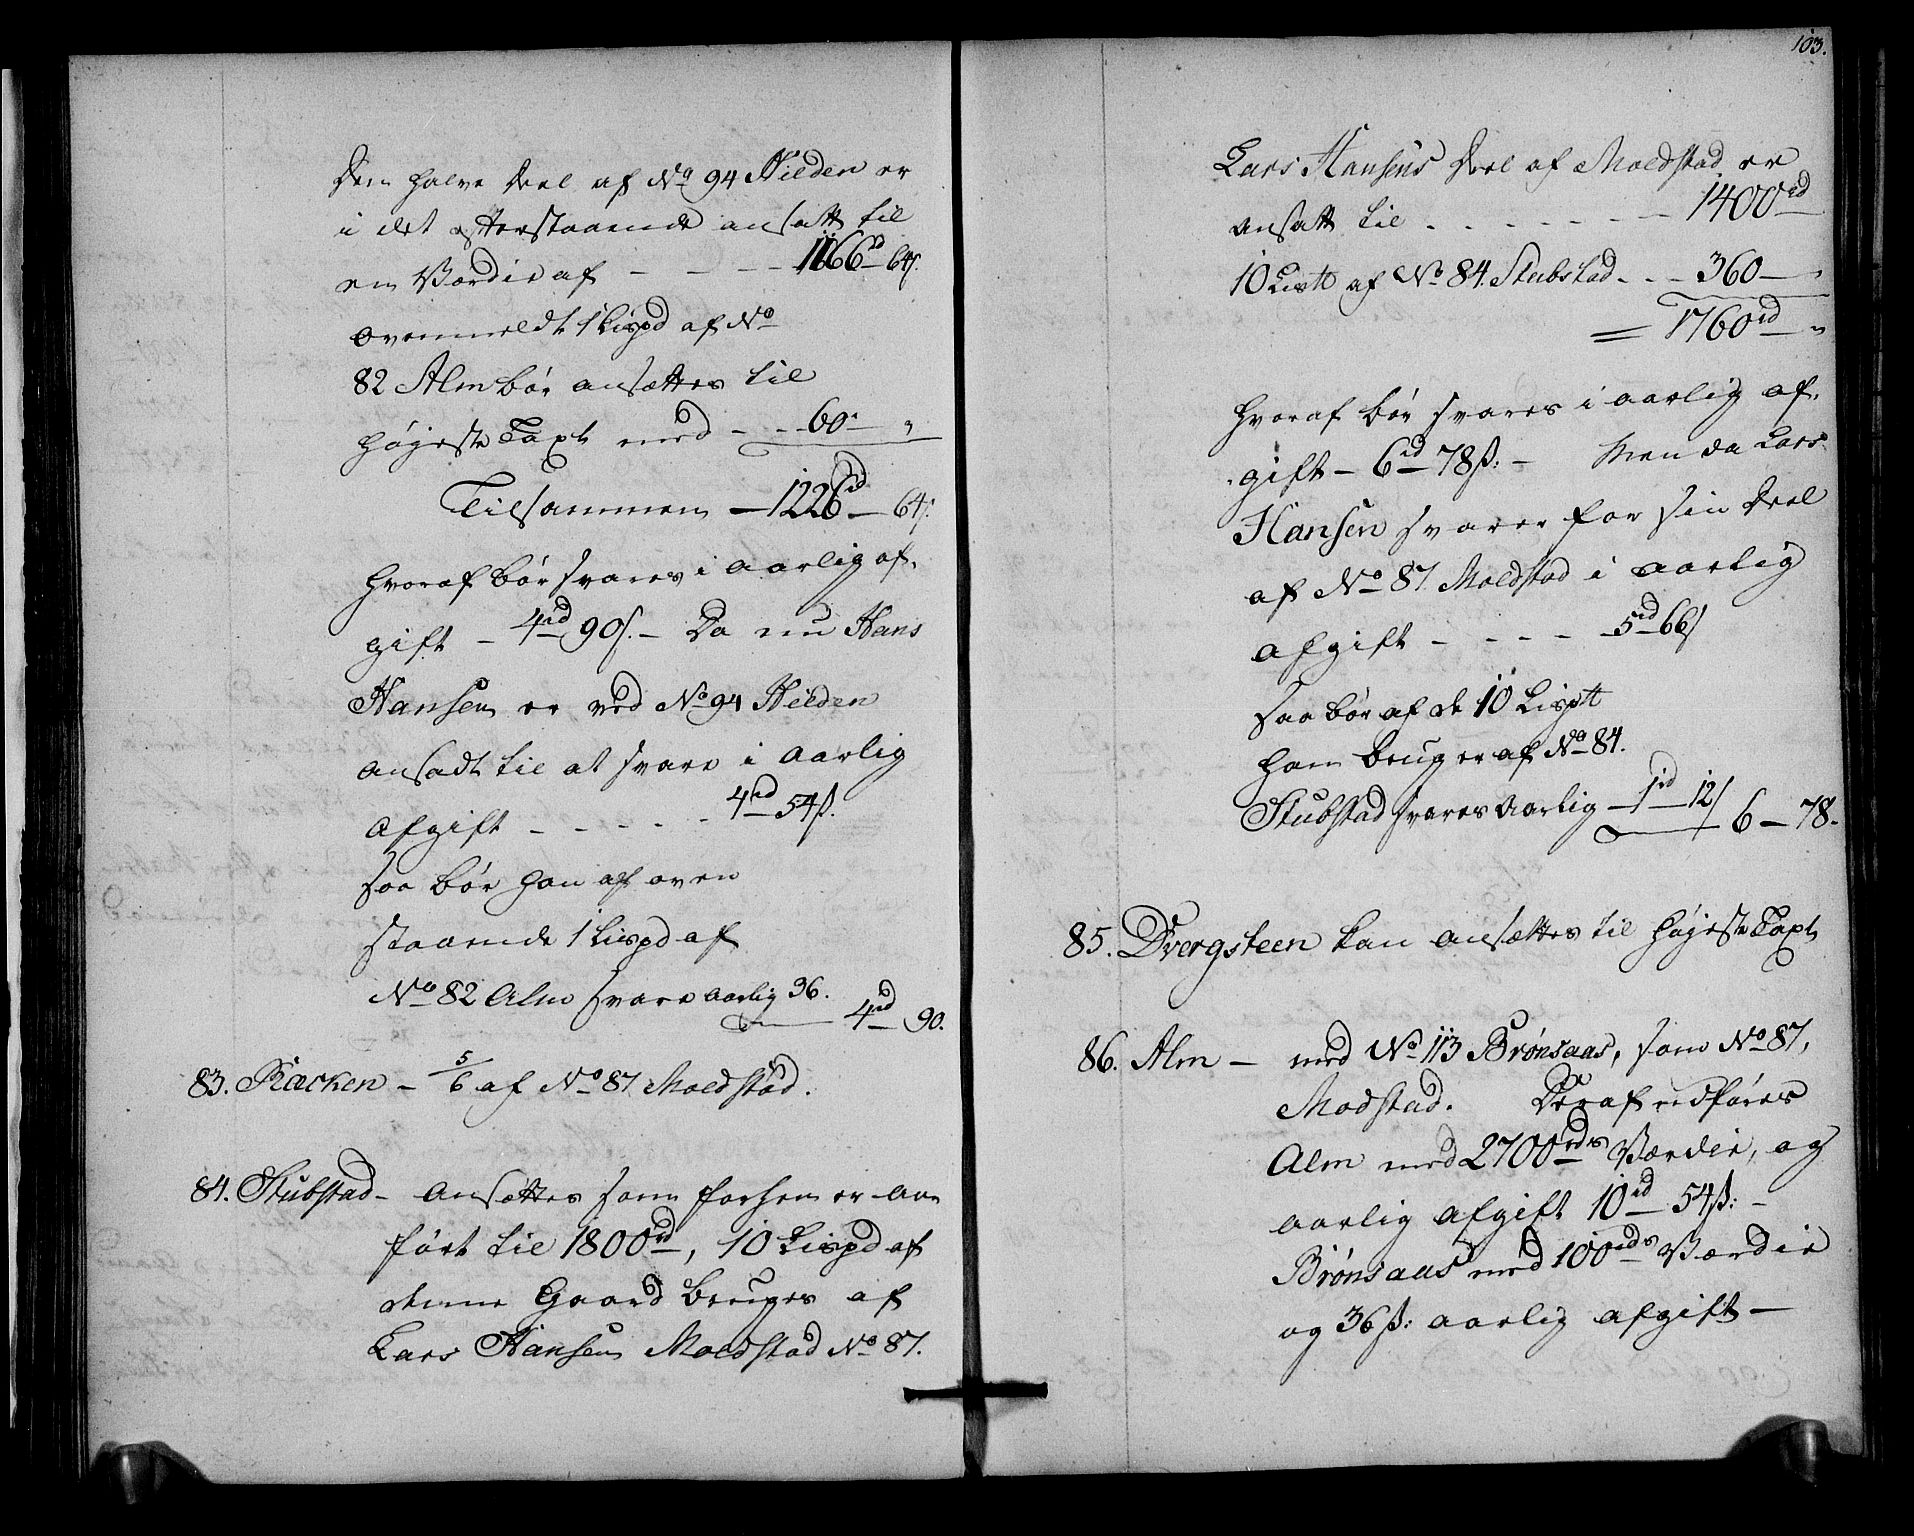 Den halve Deel af No 94 Hilden er
i det efterstaaende ansatt til
en Værdie af - - - 1166rd 64s.
ovenmeldt 1 Lispd af No
82 Alm bør ansættes til
højeste Taxt med - - 60 - "
Tilsammen - 1226rd - 64s.
hvoraf bør svares i aarlig af-
gift - 4rd 90s. - Da nu Hans
Hansen er ved No 94 Hilden
ansadt til at svare i aarlig
afgift - - - - - 4rd 54ß.
saa bør han af oven
staaende 1 Lispd af
No 82 Alm svare aarlig 36. 4rd 90.
83. Racken - 5/6 af No 87 Moldstad.
84. Stubstad - ansættes som forhen er an-
ført til 1800rd, 10 Lispd af
denne Gaard bruges af
Lars Hansen Moldstad No 87.
103.
Lars Hansens Deel af Moldstad er
ansatt til - - - - - - 1400rd
10 Lis℔ af No 84. Stubstad - - - 360 -
= 1760rd - "
hvoraf bør svares i aarlig af-
gift - 6rd 78ß: - Men da Lars
Hansen svarer for sin Deel
af No 87 Moldstad i aarlig
afgift - - - - 5rd 66s
saa bør af de 10 Lisp℔
han bruger af No 84.
Stubstad svares aarlig - 1rd 12s 6 - 78.
85. Dvergsteen kan ansættes til højeste Taxt
86. Alm - med No 113 Brønsaas, som No 87,
Modstad. Deraf udføres
Alm med 2700rds Værdie, og
aarlig afgift 10rd 54ß: -
Brønsaas med 100rds Værdie
og 36ß: aarlig afgift -